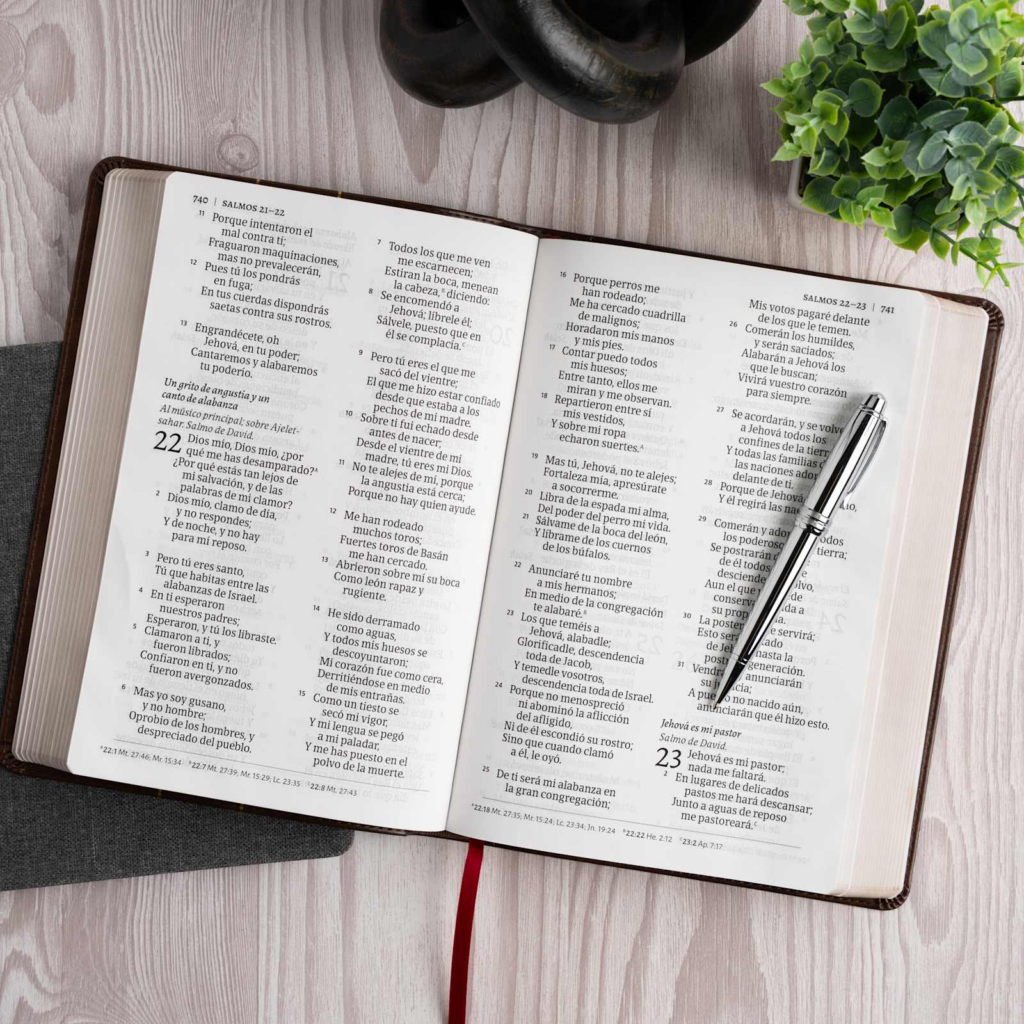 740 | SALMOS 21–22
11 Porque intentaron el
mal contra ti;
Fraguaron maquinaciones,
mas no prevalecerán,
12 Pues tú los pondrás
en fuga;
En tus cuerdas dispondrás
saetas contra sus rostros.
13 Engrandécete, oh
Jehová, en tu poder;
Cantaremos y alabaremos
tu poderío.
Un grito de angustia y un
canto de alabanza
Al músico principal; sobre Ajelet-
sahar. Salmo de David.
22 Dios mío, Dios mío, ¿por
qué me has desamparado?A
¿Por qué estás tan lejos de
mi salvación, y de las
palabras de mi clamor?
2 Dios mío, clamo de día,
y no respondes;
Y de noche, y no hay
para mí reposo.
3 Pero tú eres santo,
Tú que habitas entre las
alabanzas de Israel.
4 En ti esperaron
nuestros padres;
Esperaron, y tú los libraste.
5 Clamaron a ti, y
fueron librados;
Confiaron en ti, y no
fueron avergonzados.
6 Mas yo soy gusano,
y no hombre;
Oprobio de los hombres, y
despreciado del pueblo.
7 Todos los que me ven
me escarnecen;
Estiran la boca, menean
la cabeza,B diciendo:
8 Se encomendó a
Jehová; líbrele él;
Sálvele, puesto que en
él se complacía.C
9 Pero tú eres el que me
sacó del vientre;
El que me hizo estar confiado
desde que estaba a los
pechos de mi madre.
10 Sobre ti fui echado desde
antes de nacer;
Desde el vientre de mi
madre, tú eres mi Dios.
11 No te alejes de mí, porque
la angustia está cerca;
Porque no hay quien ayude.
12 Me han rodeado
muchos toros;
Fuertes toros de Basán
me han cercado.
13 Abrieron sobre mí su boca
Como león rapaz y
rugiente.
14 He sido derramado
como aguas,
Y todos mis huesos se
descoyuntaron;
Mi corazón fue como cera,
Derritiéndose en medio
de mis entrañas.
15 Como un tiesto se
secó mi vigor,
Y mi lengua se pegó
a mi paladar,
Y me has puesto en el
polvo de la muerte.
A22:1 Mt. 27:46; Mr. 15:34 B22:7 Mt. 27:39; Mr. 15:29; Lc. 23:35 C22:8 Mt. 27:43
SALMOS 22–23 | 741
16 Porque perros me
han rodeado;
Me ha cercado cuadrilla
de malignos;
Horadaron mis manos
y mis pies.
17 Contar puedo todos
mis huesos;
Entre tanto, ellos me
miran y me observan.
18 Repartieron entre sí
mis vestidos,
Y sobre mi ropa
echaron suertes.A
19 Mas tú, Jehová, no te alejes;
Fortaleza mía, apresúrate
a socorrerme.
20 Libra de la espada mi alma,
Del poder del perro mi vida.
21 Sálvame de la boca del león,
Y líbrame de los cuernos
de los búfalos.
22 Anunciaré tu nombre
a mis hermanos;
En medio de la congregación
te alabaré.B
23 Los que teméis a
Jehová, alabadle;
Glorificadle, descendencia
toda de Jacob,
Y temedle vosotros,
descendencia toda de Israel.
24 Porque no menospreció
ni abominó la aflicción
del afligido,
Ni de él escondió su rostro;
Sino que cuando clamó
a él, le oyó.
25 De ti será mi alabanza en
la gran congregación;
Mis votos pagaré delante
de los que le temen.
26 Comerán los humildes,
y serán saciados;
Alabarán a Jehová los
que le buscan;
Vivirá vuestro corazón
para siempre.
27 Se acordarán, y se volve
a Jehová todos los
confines de la tierr
Y todas las familias d
las naciones ador
delante de ti.
28 Porque de Jehová
Y él regirá las na
29 Comerán y ado odos
los poderoso tierra;
Se postrarán d
de él todos
desciende olvo,
Aun el que
conserva da a
su prop a.
30 La poster e servirá;
Esto será tado
de Jeh hasta la
post generación.
31 Vendr anunciarán
su ju cia;
A pue o no nacido aún,
anunciarán que él hizo esto.
Jehová es mi pastor
Salmo de David.
23 Jehová es mi pastor;
nada me faltará.
2 En lugares de delicados
pastos me hará descansar;
Junto a aguas de reposo
me pastoreará.C
A22:18 Mt. 27:35; Mr. 15:24; Lc. 23:34; Jn. 19:24 B22:22 He. 2:12 C23:2 Ap. 7:17